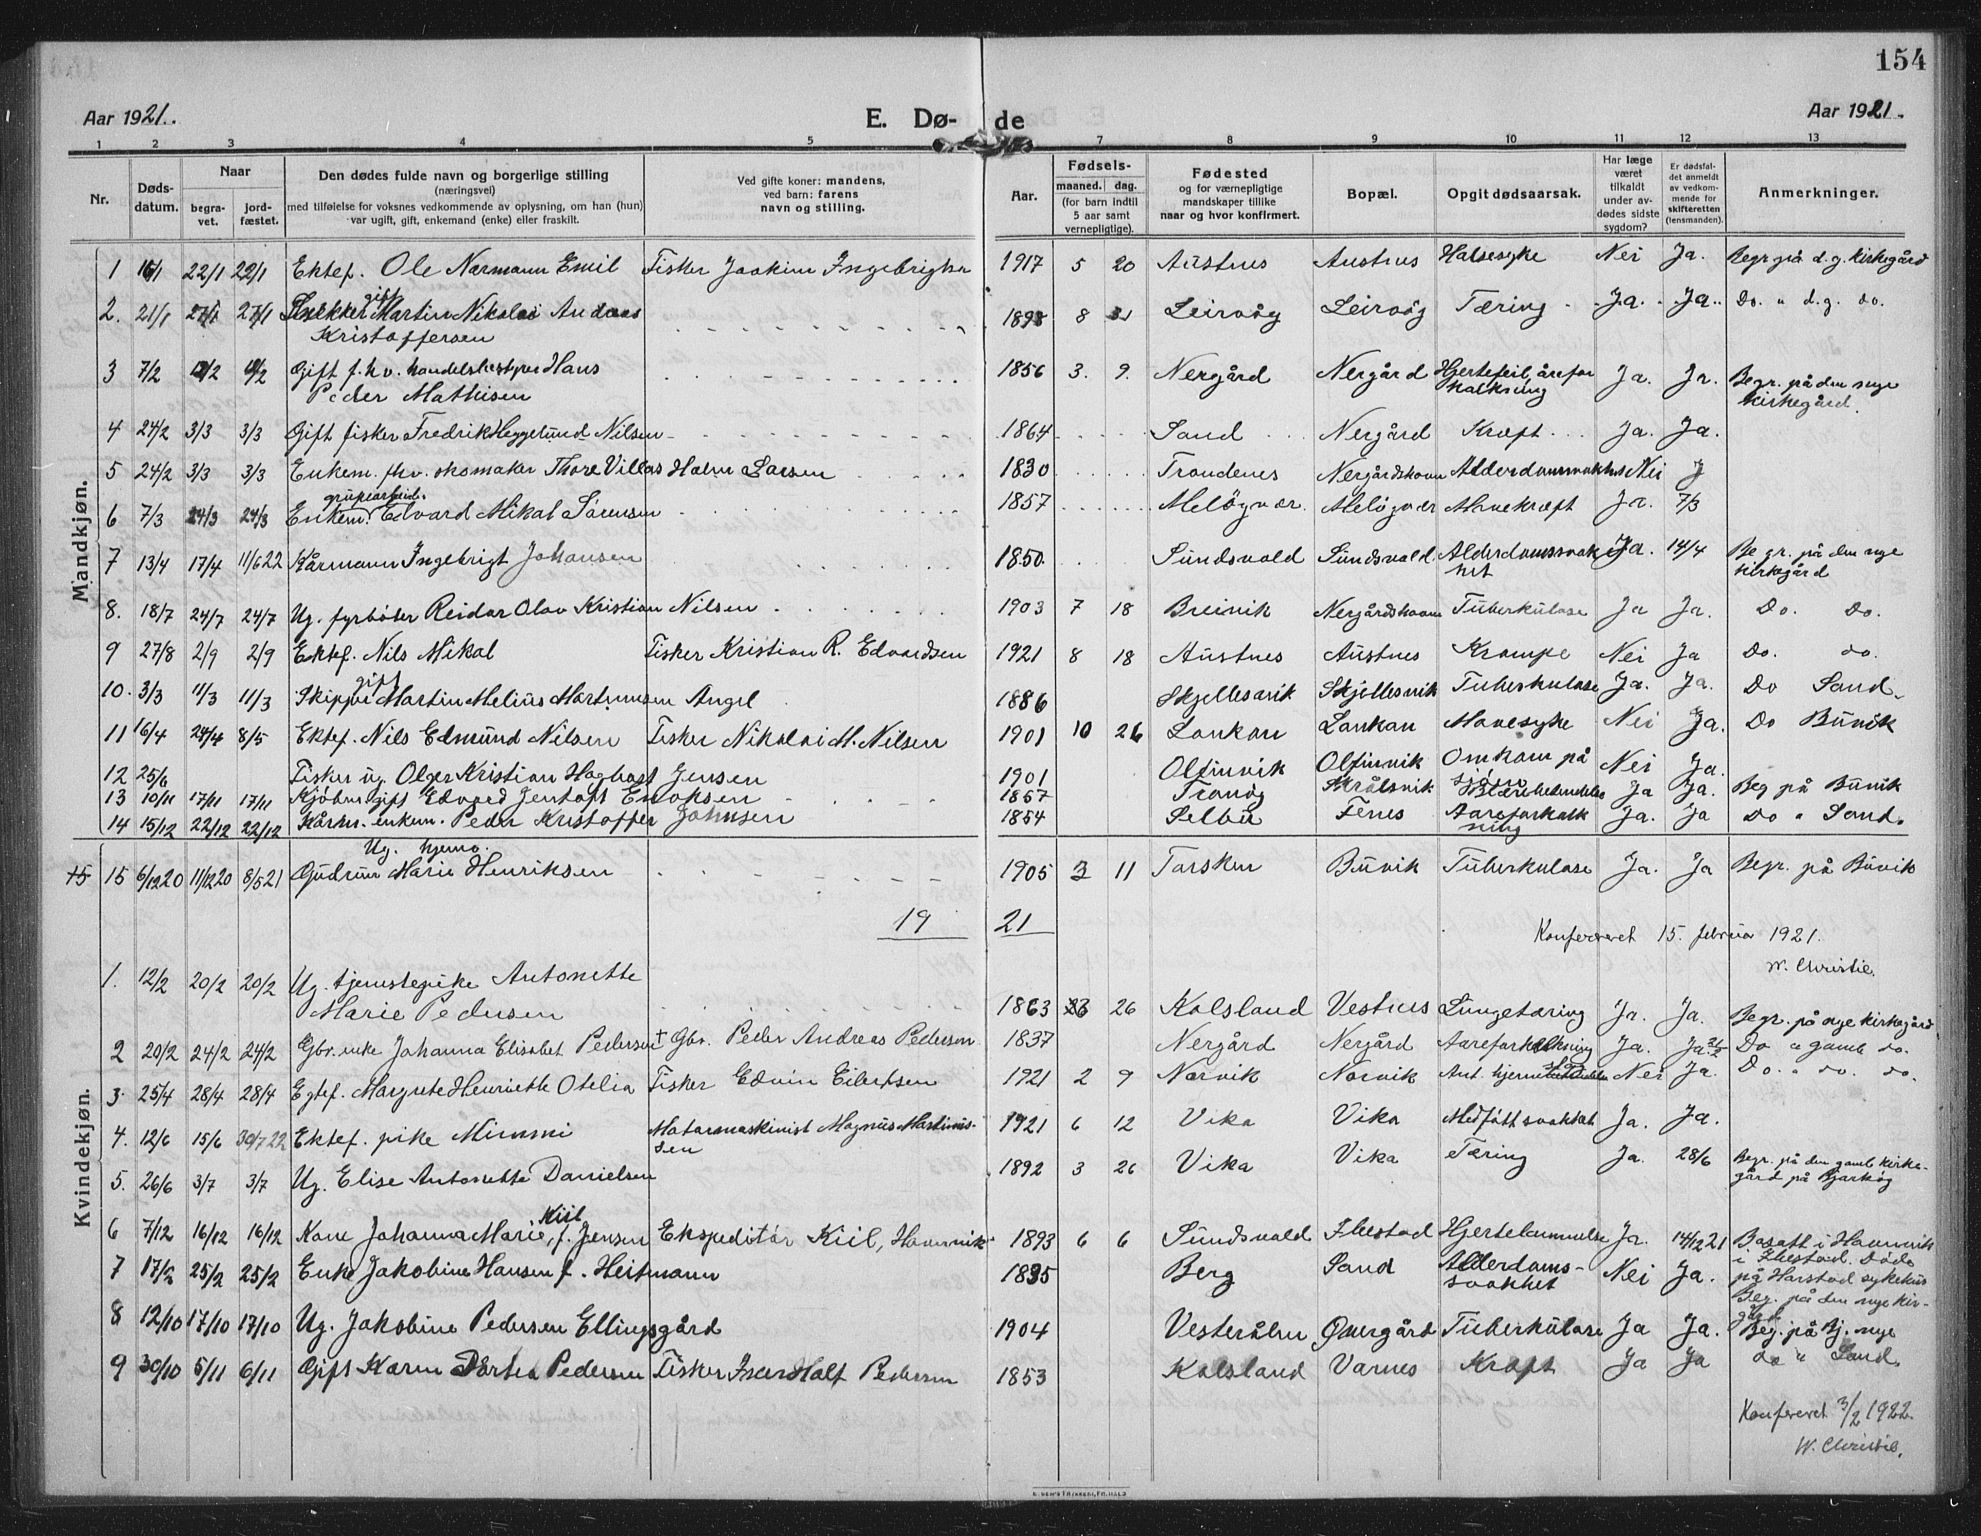 154
Aar 1921. E. Dø- de Aar 1921.
1 2 3 4 5 7 8 9 10 11 12 13
Nr. Døds-datum. Naar begra-vet. jord-fæstet. Den dødes fulde navn og borgerlige stilling (næringsvei) med tilføielse for voksnes vedkommende av oplysning, om han (hun) var ugift, gift, enkemand (enke) eller fraskilt. Ved gifte koner: mandens, ved barn: farens navn og stilling. Aar. Fødsels- maaned. dag. (for barn indtil 5 aar samt vernepligtige). Fødested og for værnepligtige mandskaper tillike naar og hvor konfirmert. Bopæl. Opgit dødsaarsak. Har læge været tilkaldt under av-dødes sidste sygdom? Er dødsfal-det anmeldt av vedkom-mende for skifteretten (lensmanden). Anmerkninger.
Mandkjøn.
1 16/1 22/1 22/1 Ektef. Ole Normann Emil Fisker Joakim Ingebrigtsen 1917 5 20 Austnes Austnes Halsesyke Nei Ja. Begr på d. g. kirkegård
2. 21/1 27/1 27/1 Snekker gift Martin Nikolai Andreas 1898 8 31 Leirvåg Leirvåg Tæring Ja. Ja. Do. " d. g. do.
Kristoffersen
3 7/2 12/2 12/2 Gift f. hv. handelsbestyrer Hans 1856 3. 9. Nergård Nergård Hjertefeil, årefor Ja. Ja. Begr. på den nye
Peder Mathisen kalkning kirkegård.
4 24/2 3/3 3/3 Gift fisker Fredrik Heggelund Nilsen 1864 Sand Nergård Kræft Ja. Ja.
5 24/2 3/3 3/3 Enkem. fhv. skomaker Thore Villas Holm Larsen 1830 Trondenes Nergårdshavn Alderdomssvakhet Nei J
6 7/3 24/3 24/3 Enkem. grubearbeid. Edvard Mikal Sørensen 1857 Meløyvær Meløyvær Mavekræft Ja. 7/3
7 13/4 17/4 11/6 22 Kårmann Ingebrigt Johansen 1850 Sundsvold Sundsvald Alderdomssvak Ja. 14/4 Begr. på den nye
het kirkegård
8. 18/7 24/7 24/7 Ug. fyrbøter Reidar Olav Kristian Nilsen 1903 7 18 Breivik Nergårdshavn Tuberkulose Ja Ja. Do. Do.
9 27/8 2/9 2/9 Ektef. Nils Mikal Fisker Kristian R. Edvardsen 1921 8 18 Austnes Austnes Krampe Nei Ja Do. do.
10. 3/3 11/3 11/3 Skipper gift Martin Melius Martinusen Angel 1886 Skjellesvik Skjellesvik Tuberkulose Ja. Ja. Do Sand.
11 16/4 24/4 8/5 Ektef. Nils Edmund Nilsen Fisker Nikolai M. Nilsen 1901 10 26 Lankan Lankan Mavesyke Nei Ja. Do Buvik
12 25/6 Fisker ug. Olger Kristian Hagbart Jensen 1901 Olfinvik Olfinvik Omkom på Nei Ja.
sjøen
13 10/11 17/11 17/11 Kjøbm. gift Edvard Jentoft Enoksen 1857 Tranøy Skrålsvik Ja Ja. Beg på Buvik
14 15/12 22/12 22/12 Kårm. enkem. Peder Kristoffer Johnsen 1854 Selbu Fenes Aareforkalk Ja. Ja Do " Sand.
ning
15 15 6/12 20 11/12 20 8/5 21 Ug. hjemv. Gudrun Marie Henriksen 1905 3 11 Torsken Buvik Tuberkulose Ja. Ja Begr. på Buvik
19 21
Konfereret 15. februar 1921.
W. Christie.
Kvindekjøn.
1. 12/2 20/2 20/2 Ug. tjenestepike Antonette
Marie Pedersen 1863 26 Kolsland Vestnes Lungetæring Ja. Ja. Begr. på nye kirkegård
2 20/2 24/2 24/2 Gbr. enke Johanna Elisabet Pedersen + Gbr. Peder Andreas Pedersen 1837 Nergård Nergård Aareforkalkning Ja. Ja. Do " gamle do.
3. 25/4 28/4 28/4 Egtef. Margrete Henriette Otelia Fisker Edvin Eilertsen 1921 2 9 Norvik Norvik Ant. Nei Ja. Do. " do. do.
4. 12/6 15/6 30/7 22 Ektef. pike Mimmi Motormaskinist Magnus Martinus- 1921 6 12 Vika Vika Medfött svakhet Ja. Ja.
sen
5. 26/6 3/7 3/7 Ug. Elise Antonette Danielsen 1892 3 26 Vika Vika Tæring Ja. 28/6 Begr. på den gamle kirke-
gård på Bjarkøy
6 7/12 16/12 16/12 Kone Johanna Marie Kiil, f. Jensen Ekspeditør Kiil, Hamnvik 1893 6 6 Sundsvald Ibestad Hjertelammelse Ja. 14/12 21 Bosatt i Hamnvik
i Ibestad. Døde
7 17/2 25/2 25/2 Enke Jakobine Hansen f. Heitmann 1835 Berg Sand Alderdoms- Nei Ja. på Harstad sykehus
svakhet Beg. på den nye kir-
gård
8 12/10 17/10 17/10 Ug. Jakobine Pedersen Ellingsgård 1904 Vesterålen Øvergård Tuberkulose Ja Ja. Beg. på Bj. nye
9 30/10 5/11 6/11 Gift Karen Dortea Pedersen Fisker Iver Hall Pedersen 1853 Kolsland Varnes Kræft Ja Ja do " Sand.
Konfereret 3/2 1922.
W. Christie.